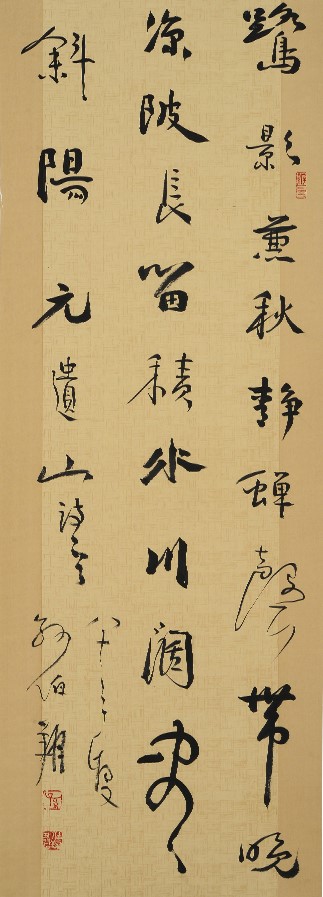 鷺影兼秋静蟬聲帶晚
涼陂長留積水川闊盡
斜陽 元遺山詩
八十叟
孫伯翔